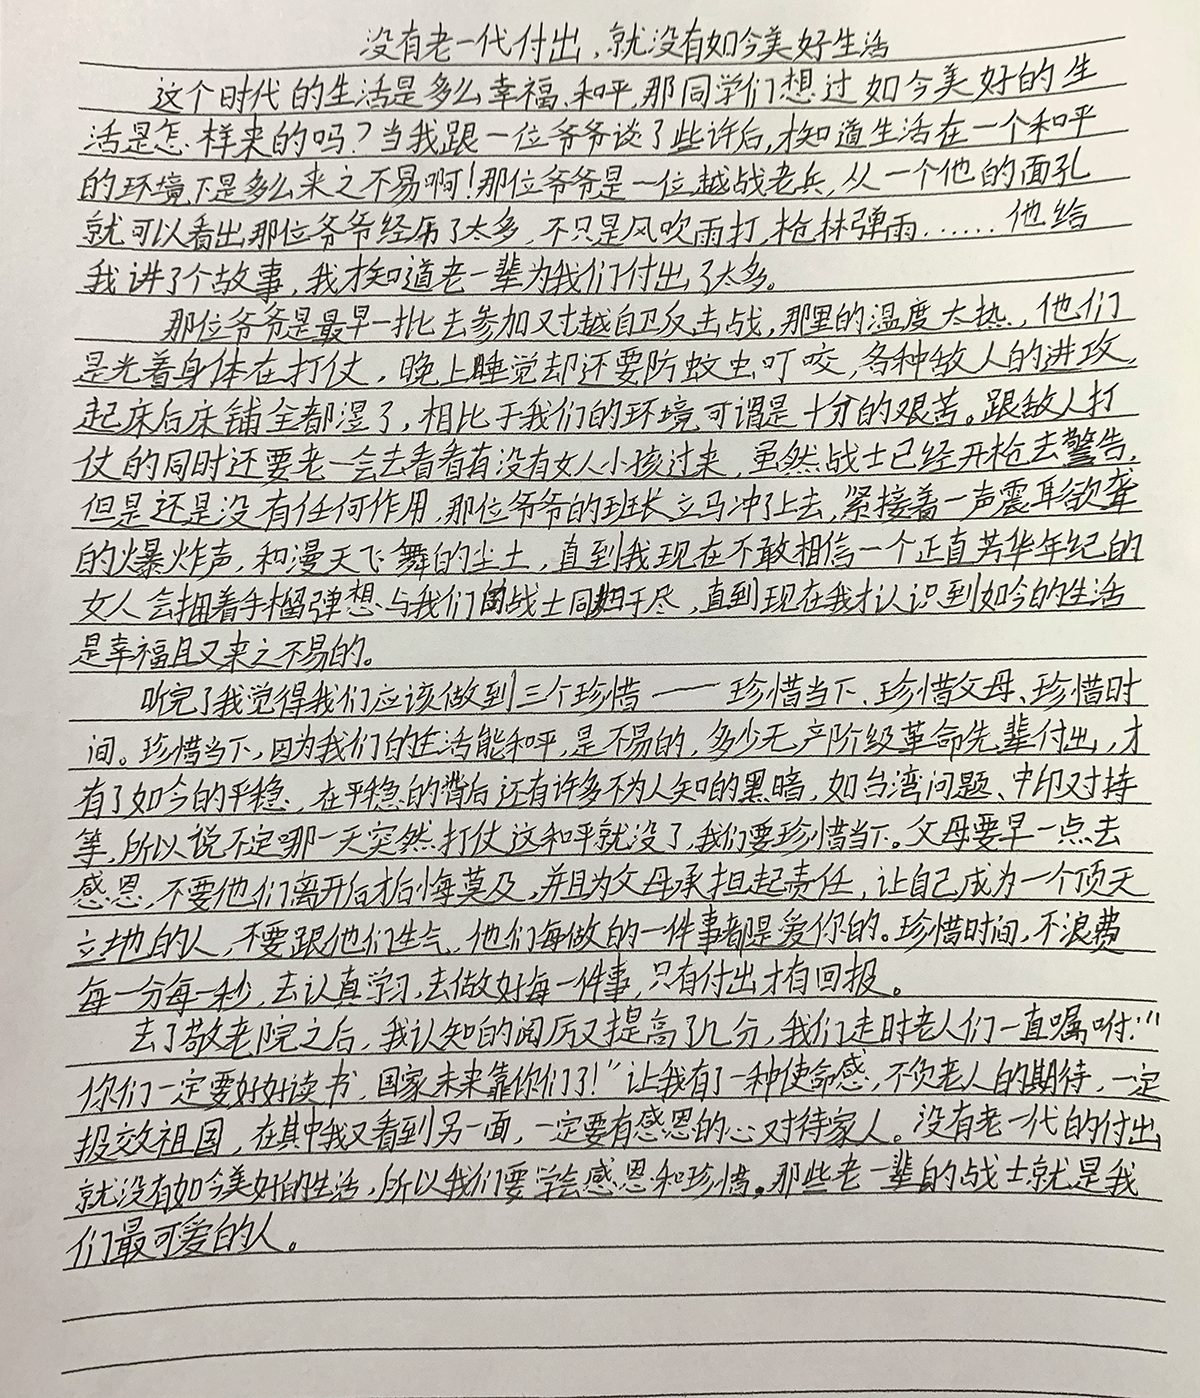 没有老一代付出，就没有如今美好生活
这个时代的生活是多么幸福、和平，那同学们想过如今美好的生
活是怎样来的吗？当我跟一位爷爷谈了些许后，才知道生活在一个和平
的环境下是多么来之不易啊！那位爷爷是一位越战老兵，从一个他的面孔
就可以看出，那位爷爷经历了太多，不只是风吹雨打，枪林弹雨……他给
我讲了个故事，我才知道老一辈为我们付出了太多。
那位爷爷是最早一批去参加对越自卫反击战，那里的温度太热，他们
是光着身体在打仗，晚上睡觉却还要防蚊虫叮咬，各种敌人的进攻，
起床后床铺全都湿了，相比于我们的环境，可谓是十分的艰苦。跟敌人打
仗的同时还要老一会去看看有没有女人小孩过来，虽然战士已经开枪去警告，
但是还是没有任何作用，那位爷爷的班长立马冲了上去，紧接着一声震耳欲聋
的爆炸声，和漫天飞舞的尘土，直到我现在不敢相信一个正直芳华年纪的
女人会拥着手榴弹想与我们的战士同归于尽，直到现在我才认识到如今的生活
是幸福且又来之不易的。
听完了我觉得我们应该做到三个珍惜——珍惜当下、珍惜父母、珍惜时
间。珍惜当下，因为我们的生活能和平，是不易的，多少无产阶级革命先辈付出，才
有了如今的平稳，在平稳的背后还有许多不为人知的黑暗，如台湾问题、中印对持
等，所以说不定哪一天突然打仗这和平就没了，我们要珍惜当下。父母要早一点去
感恩，不要他们离开后才后悔莫及，并且为父母承担起责任，让自己成为一个顶天
立地的人，不要跟他们生气，他们每做的一件事都是爱你的。珍惜时间，不浪费
每一分每一秒，去认真学习，去做好每一件事，只有付出才有回报。
去了敬老院之后，我认知的阅历又提高了几分，我们走时老人们一直嘱咐：“
你们一定要好好读书，国家未来靠你们了！”让我有了一种使命感，不负老人的期待，一定
报效祖国，在其中我又看到另一面，一定要有感恩的心对待家人。没有老一代的付出，
就没有如今美好的生活，所以我们要学会感恩和珍惜。那些老一辈的战士就是我
们最可爱的人。